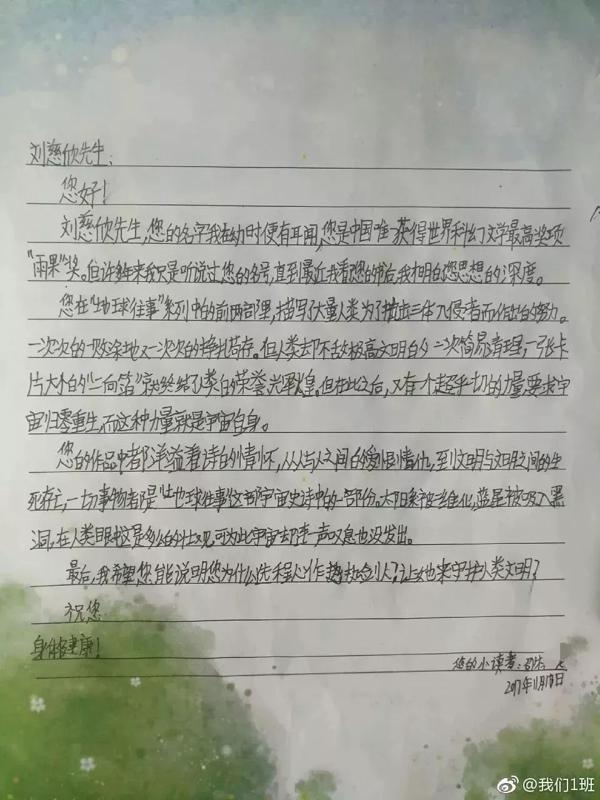 刘慈欣先生：
您好！
刘慈欣先生，您的名字我在幼时便有耳闻，您是中国唯一获得世界科幻文学最高奖项
“雨果”奖。但许多年来我只是听说过您的名号，直到最近我看您的书后，我才明白您思想的深度。
您在“地球往事”系列中的前两部里，描写了大量人类为了抵击三体入侵者而作出的努力。
一次次的一败涂地又一次次的挣扎苟存。但人类却不敌极高文明的一次简易清理，一张卡
片大小的“二向箔”就终结了人类的荣誉光辉煌。但在此之后，又有一个超乎一切的力量要求宇
宙归零重生，而这种力量就是宇宙自身。
您的作品中都洋溢着诗的情怀，从人与人之间的爱恨情仇，到文明与文明之间的生
死存亡，一切事物都是“地球往事”这部宇宙史诗中的一部份。太阳系被二维化，蓝星被吸入黑
洞，在人类眼中这是多么的壮观，可为此宇宙却连一声叹息也没发出。
最后，我希望您能说明您为什么选程心作为执剑人？让她来守护人类文明？
祝您
身体健康！
您的小读者：
2017年11月19日
@我们1班